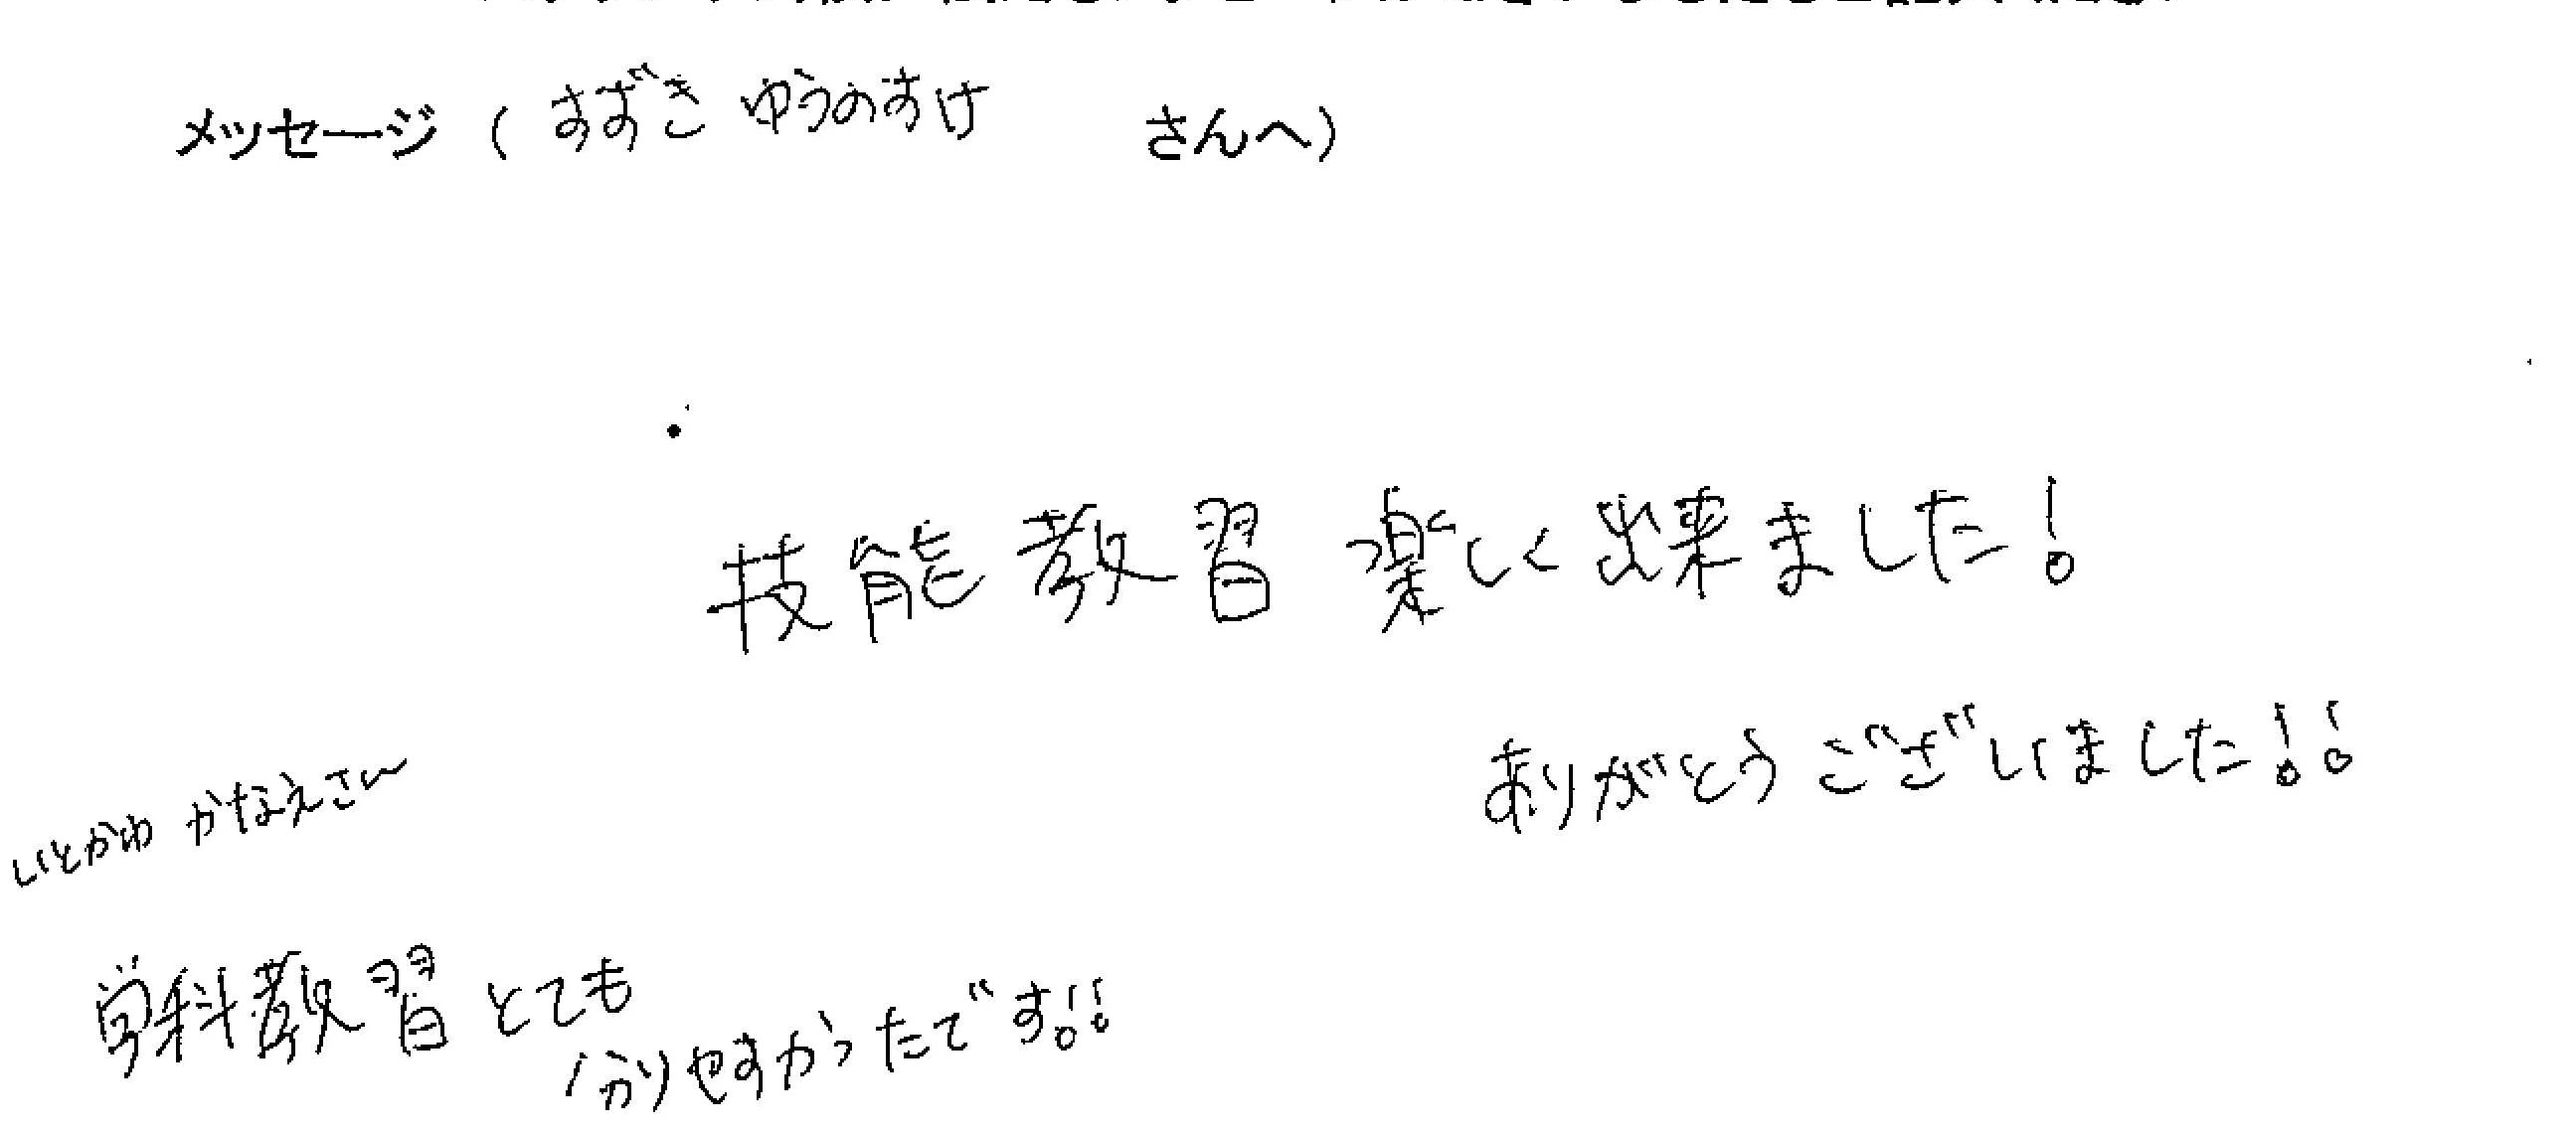 メッセージ（すずき ゆうのすけ さんへ）
技能教習 楽しく出来ました！
ありがとうございました！！
いとかわ かなえさん
学科教習 とても
分りやすかったです！！